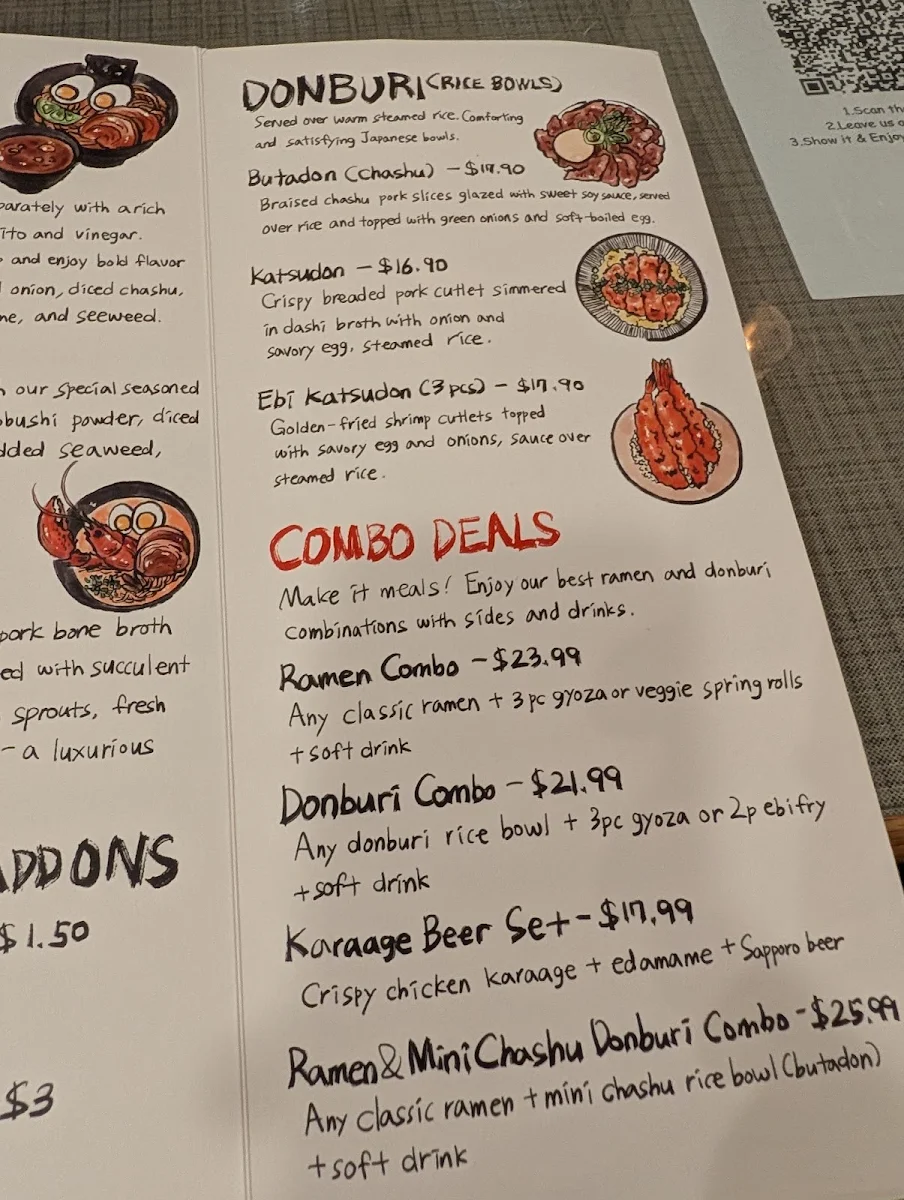 parately with a rich
ito and vinegar.
and enjoy bold flavor
onion, diced chashu,
ne, and seeweed.
our special seasoned
obushi powder, diced
dded seaweed,
pork bone broth
ed with succulent
sprouts, fresh
- a luxurious
ADDONS
$1.50
$3
DONBURI (RICE BOWLS)
Served over warm steamed rice. Comforting
and satisfying Japanese bowls.
Butadon (Chashu) -
Braised chashu pork slices glazed with sweet soy sauce, served
over rice and topped with green onions and soft-boiled egg.
Katsudon - $16.90
Crispy breaded pork cutlet simmered
in dashi broth with onion and
savory egg, steamed rice.
Ebi Katsudon (3 pcs) - $17.90
Golden-fried shrimp cutlets topped
with savory egg and onions, sauce over
steamed rice.
COMBO DEALS
Make it meals! Enjoy our best ramen and donburi
combinations with sides and drinks.
Ramen Combo - $23.99
Any classic ramen + 3 pc gyoza or veggie spring rolls
+ soft drink
Donburi Combo - $21.99
Any donburi rice bowl + 3pc gyoza or 2p ebi fry
+ soft drink
Karaage Beer Set - $17.99
Crispy chicken karaage + edamame + Sapporo beer
Ramen & Mini Chashu Donburi Combo - $25.99
Any classic ramen + mini chashu rice bowl (butadon)
+ soft drink
1.Scan th
2.Leave us a
3.Show it & Enjoy